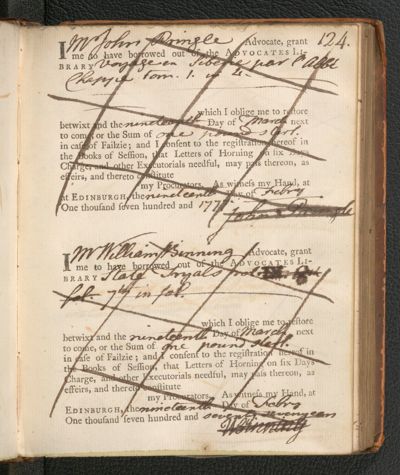 124.
I Mr John Pringle Advocate, grant
me to have borrowed out of the ADVOCATES LI-
BRARY Voyage en Siberie par l'Abbé
Chappe tom. 1. in 4.
which I oblige me to restore
betwixt and the nineteenth Day of March next
to come, or the Sum of one pound sterl.
in case of Failzie; and I consent to the registration hereof in
the Books of Session, that Letters of Horning on six Days
Charge, and other Executorials needful, may pass thereon, as
effeirs, and thereto constitute
my Procurators. As witness my Hand, at
at EDINBURGH, the nineteenth Day of Febry
One thousand seven hundred and 177
John Pringle
I Mr William Binning Advocate, grant
me to have borrowed out of the ADVOCATES LI-
BRARY State Tryals
fol. 7th in fol.
which I oblige me to restore
betwixt and the nineteenth Day of March next
to come, or the Sum of one pound sterl.
in case of Failzie; and I consent to the registration hereof in
the Books of Session, that Letters of Horning on six Days
Charge, and other Executorials needful, may pass thereon, as
effeirs, and thereto constitute
my Procurators. As witness my Hand, at
EDINBURGH, the nineteenth Day of Febry
One thousand seven hundred and seventy seven years